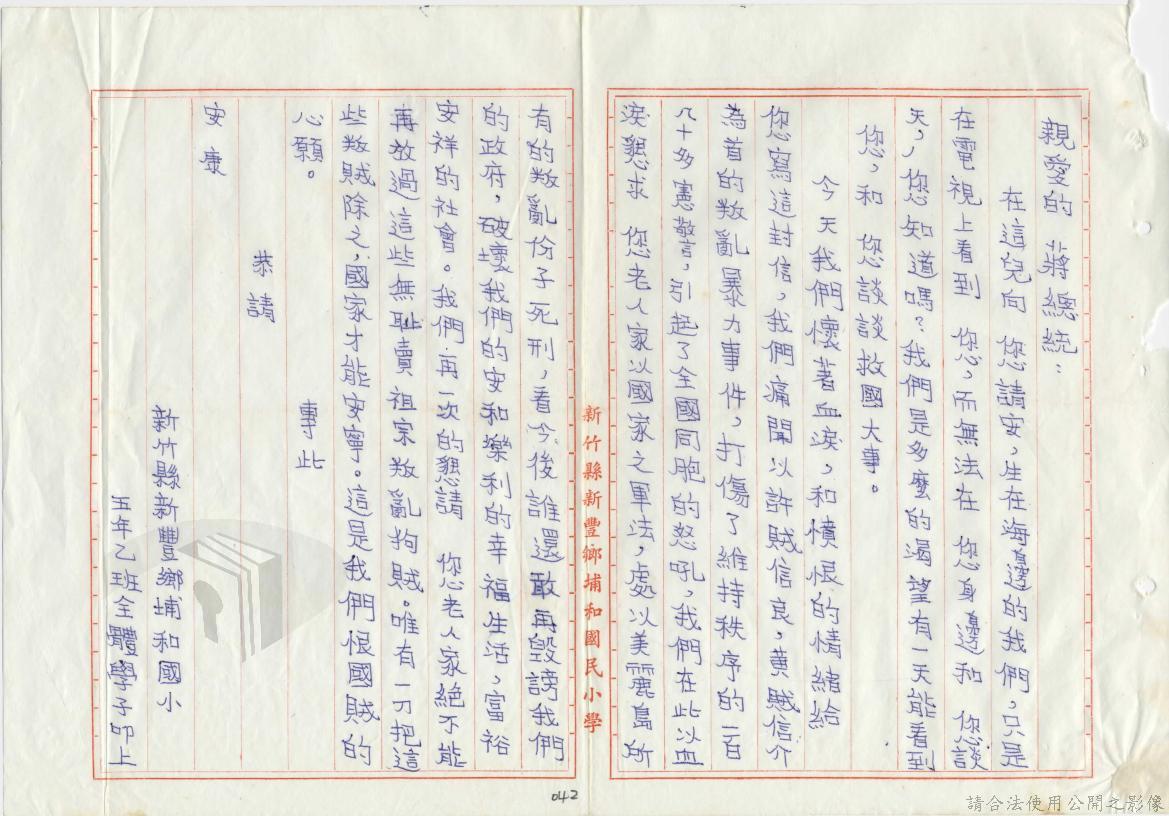 親愛的 蔣總統：
在這兒向 您請安，生在海邊的我們，只是
在電視上看到 您，而無法在 您身邊和 您談
天，您知道嗎？我們是多麼的渴望有一天能看到
您，和 您談談救國大事。
今天我們懷著血淚，和憤恨的情緒給
您寫這封信，我們痛聞以許賊信良，黃賊信介
為首的叛亂暴力事件，打傷了維持秩序的一百
八十多憲警，引起了全國同胞的怒吼，我們在此以血
淚懇求 您老人家以國家之軍法，處以美麗島所
有的叛亂份子死刑，看今後誰還敢再毀謗我們
的政府，破壞我們的安和樂利的幸福生活，富裕
安祥的社會。我們再一次的懇請 您老人家絕不能
再放過這些無恥賣祖宗叛亂狗賊。唯有一刀把這
些叛賊除之，國家才能安寧。這是我們恨國賊的
心願。 專此
恭請
安康
新竹縣新豐鄉埔和國小
五年乙班全體學子叩上
新竹縣新豐鄉埔和國民小學
042
請合法使用公開之影像